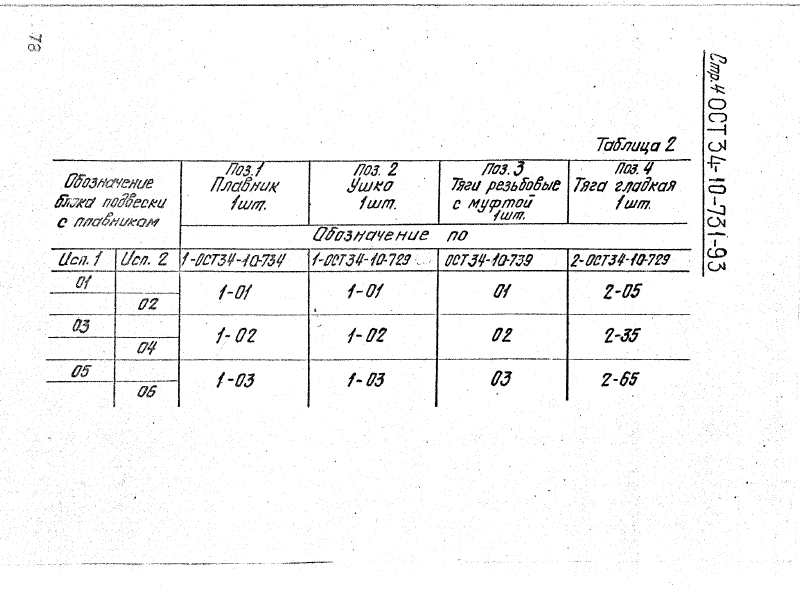 78
Стр. 4 ОСТ 34-10-731-93
Таблица 2
Обозначение
блока подвески
с плавником
Поз. 1
Плавник
1шт.
Поз. 2
Ушко
1шт.
Поз. 3
Тяги резьбовые
с муфтой
1шт.
Поз. 4
Тяга гладкая
1шт.
Обозначение по
Исп. 1 Исп. 2 1-ОСТ34-10-734 1-ОСТ34-10-729 ОСТ34-10-739 2-ОСТ34-10-729
01
02
1-01 1-01 01 2-05
03
04
1-02 1-02 02 2-35
05
06
1-03 1-03 03 2-65